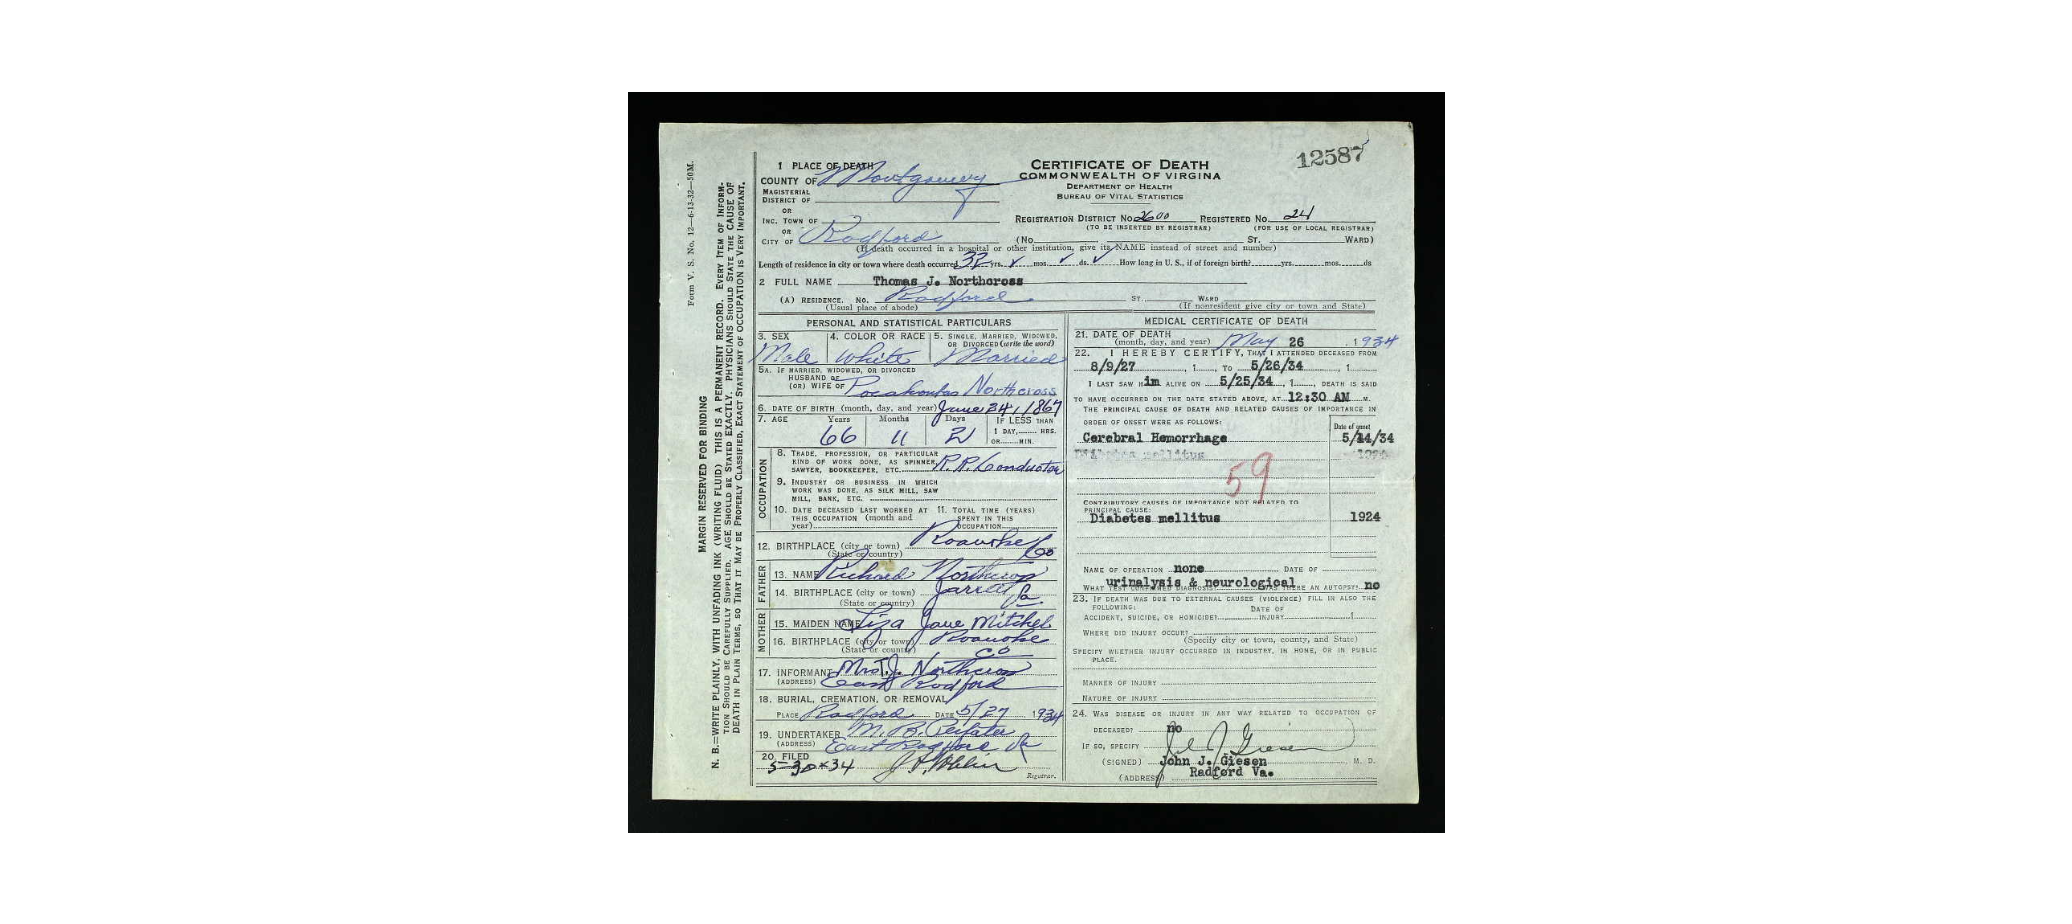 12587
Form V. S. No. 12—6-13-32—50M.
MARGIN RESERVED FOR BINDING
N. B.—WRITE PLAINLY, WITH UNFADING INK (WRITING FLUID) THIS IS A PERMANENT RECORD. EVERY ITEM OF INFORM-
TION SHOULD BE CAREFULLY SUPPLIED. AGE SHOULD BE STATED EXACTLY. PHYSICIANS SHOULD STATE THE CAUSE OF
DEATH IN PLAIN TERMS, SO THAT IT MAY BE PROPERLY CLASSIFIED, EXACT STATEMENT OF OCCUPATION IS VERY IMPORTANT.
1 PLACE OF DEATH
COUNTY OF Montgomery
MAGISTERIAL
DISTRICT OF
OR
INC. TOWN OF
OR
CITY OF Radford
CERTIFICATE OF DEATH
COMMONWEALTH OF VIRGINIA
DEPARTMENT OF HEALTH
BUREAU OF VITAL STATISTICS
REGISTRATION DISTRICT No. 2600 REGISTERED No. 24
(TO BE INSERTED BY REGISTRAR) (FOR USE OF LOCAL REGISTRAR)
(No. ST. WARD)
(If death occurred in a hospital or other institution, give its NAME instead of street and number)
Length of residence in city or town where death occurred 32 yrs. mos. ds. How long in U. S., if of foreign birth? yrs. mos. ds
2 FULL NAME Thomas J. Northcross
(A) RESIDENCE. No. Radford ST. WARD
(Usual place of abode) (If nonresident give city or town and State)
PERSONAL AND STATISTICAL PARTICULARS
3. SEX Male
4. COLOR OR RACE White
5. SINGLE, MARRIED, WIDOWED,
OR DIVORCED (write the word)
Married
5A. IF MARRIED, WIDOWED, OR DIVORCED
HUSBAND OF
(OR) WIFE OF Pocahontas Northcross
6. DATE OF BIRTH (month, day, and year) June 24, 1867
7. AGE Years Months Days IF LESS THAN
1 DAY, HRS.
OR MIN.
66 11 2
OCCUPATION
8. TRADE, PROFESSION, OR PARTICULAR
KIND OF WORK DONE, AS SPINNER,
SAWYER, BOOKKEEPER, ETC. R.R. Conductor
9. INDUSTRY OR BUSINESS IN WHICH
WORK WAS DONE, AS SILK MILL, SAW
MILL, BANK, ETC.
10. DATE DECEASED LAST WORKED AT
THIS OCCUPATION (month and
year)
11. TOTAL TIME (YEARS)
SPENT IN THIS
OCCUPATION
12. BIRTHPLACE (city or town) Roanoke Co
(State or country)
FATHER
13. NAME Richard Northcross
14. BIRTHPLACE (city or town) Jarratt Va.
(State or country)
MOTHER
15. MAIDEN NAME Liza Jane Mitchel
16. BIRTHPLACE (city or town) Roanoke
(State or country) Co
17. INFORMANT Mrs T. J. Northcross
(ADDRESS) East Radford
18. BURIAL, CREMATION, OR REMOVAL
PLACE Radford DATE 5/27 1934
19. UNDERTAKER M. B.
(ADDRESS) East Radford Va
20. FILED
5-30*34
Registrar.
MEDICAL CERTIFICATE OF DEATH
21. DATE OF DEATH
(month, day, and year) May 26 , 1934
22. I HEREBY CERTIFY, THAT I ATTENDED DECEASED FROM
8/9/27 , 1 , TO 5/26/34 , 1
I LAST SAW Him ALIVE ON 5/25/34 , 1 , DEATH IS SAID
TO HAVE OCCURRED ON THE DATE STATED ABOVE, AT 12:30 AM M.
THE PRINCIPAL CAUSE OF DEATH AND RELATED CAUSES OF IMPORTANCE IN
ORDER OF ONSET WERE AS FOLLOWS:
Date of onset
Cerebral Hemorrhage 5/14/34
Diabetes mellitus
59
CONTRIBUTORY CAUSES OF IMPORTANCE NOT RELATED TO
PRINCIPAL CAUSE:
Diabetes mellitus 1924
NAME OF OPERATION none DATE OF
urinalysis & neurological
WHAT TEST CONFIRMED DIAGNOSIS? WAS THERE AN AUTOPSY? no
23. IF DEATH WAS DUE TO EXTERNAL CAUSES (VIOLENCE) FILL IN ALSO THE
FOLLOWING:
ACCIDENT, SUICIDE, OR HOMICIDE? DATE OF INJURY 1
WHERE DID INJURY OCCUR?
(Specify city or town, county, and State)
SPECIFY WHETHER INJURY OCCURRED IN INDUSTRY, IN HOME, OR IN PUBLIC
PLACE.
MANNER OF INJURY
NATURE OF INJURY
24. WAS DISEASE OR INJURY IN ANY WAY RELATED TO OCCUPATION OF
DECEASED? no
IF SO, SPECIFY
John J. Giesen
(SIGNED) John J. Giesen M. D.
(ADDRESS) Radford Va.